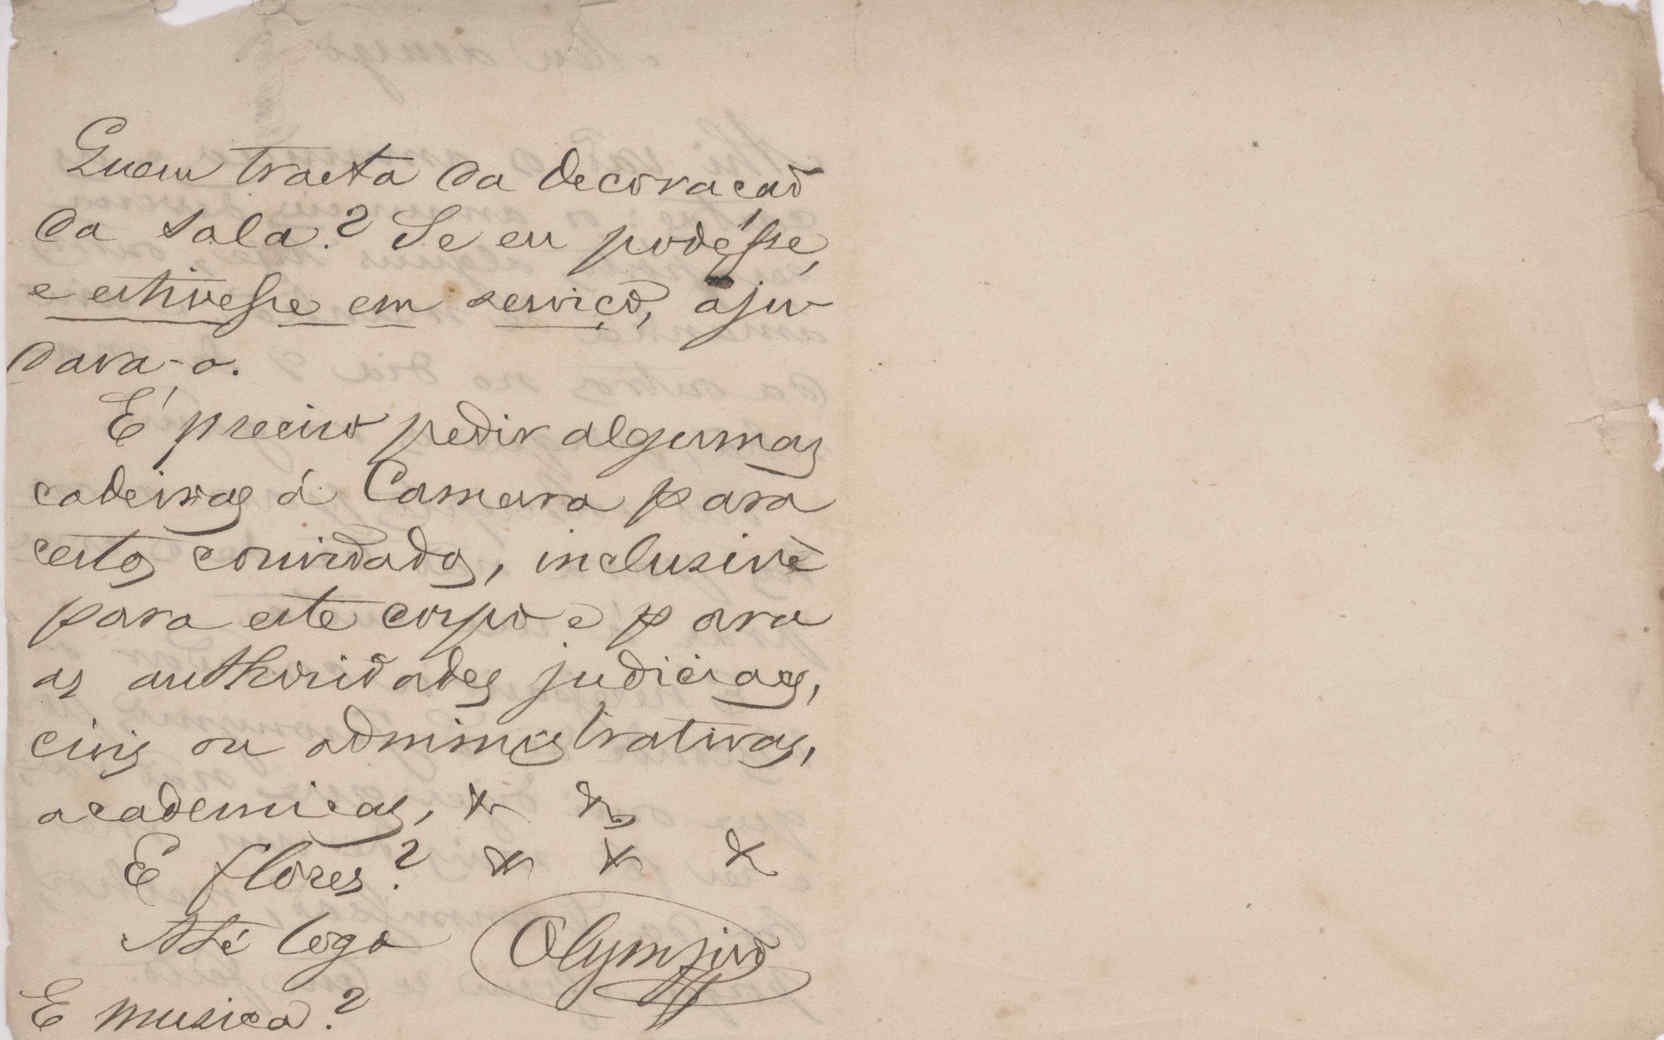 Quem tracta da decoração
da sala? Se eu podésse,
e estivesse em serviço, aju-
dava-o.
É preciso pedir algumas
cadeiras á Camara para
certos convidados, inclusivè
para este corpo e para
as authoridades judiciaes,
civis ou administrativas,
academicas, × ×
E flores? × × ×
Até logo Olympio
E musica?